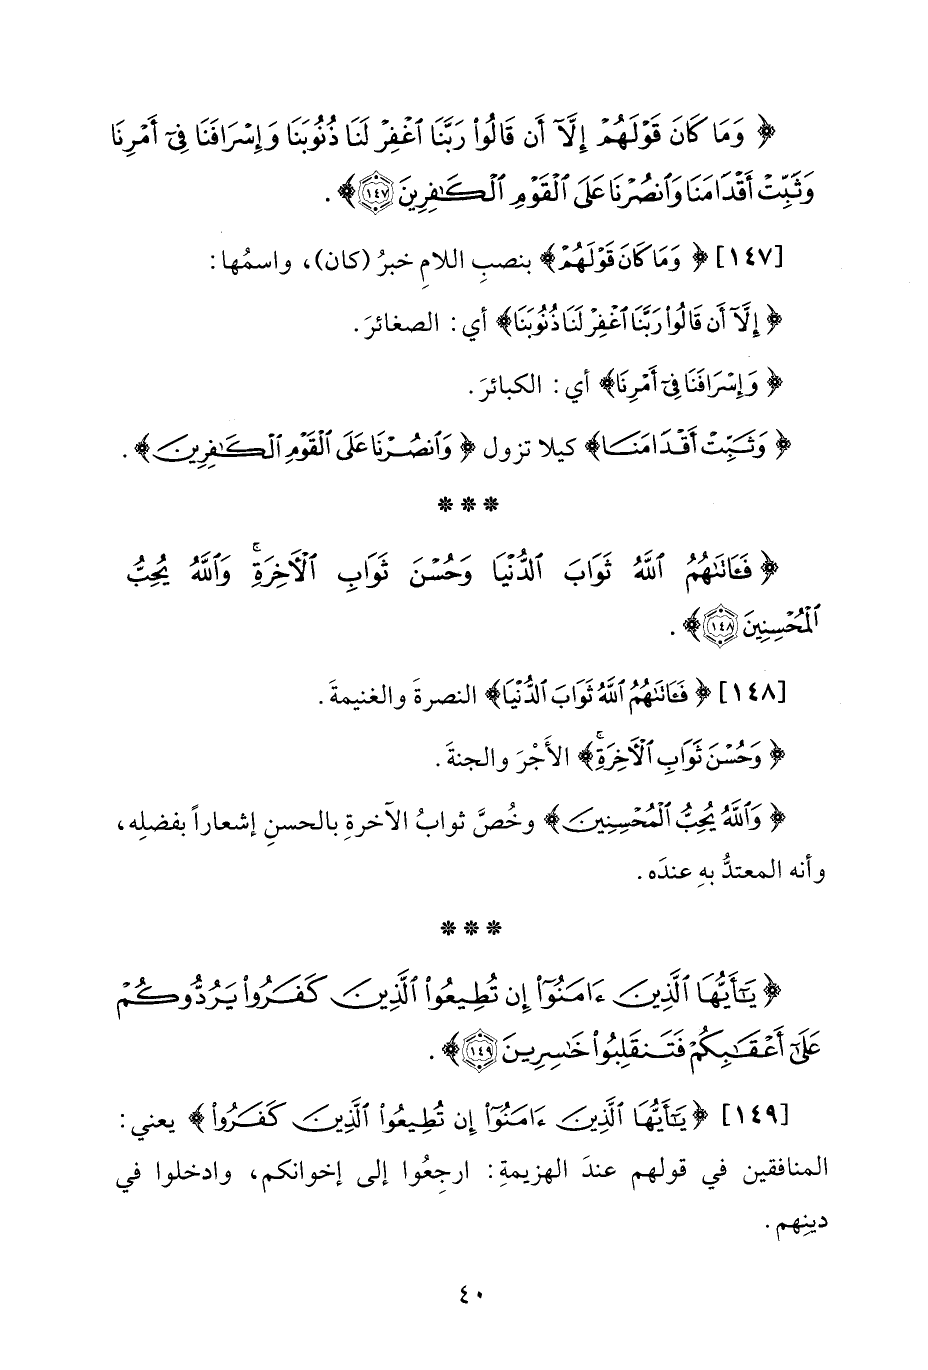 ﴿ وَمَا كَانَ قَوْلَهُمْ إِلَّآ أَن قَالُوا۟ رَبَّنَا ٱغْفِرْ لَنَا ذُنُوبَنَا وَإِسْرَافَنَا فِىٓ أَمْرِنَا
وَثَبِّتْ أَقْدَامَنَا وَٱنصُرْنَا عَلَى ٱلْقَوْمِ ٱلْكَـٰفِرِينَ ۝١٤٧ ﴾ .
[١٤٧] ﴿ وَمَا كَانَ قَوْلَهُمْ ﴾ بنصبِ اللامِ خبرُ (كان)، واسمُها:
﴿ إِلَّآ أَن قَالُوا۟ رَبَّنَا ٱغْفِرْ لَنَا ذُنُوبَنَا ﴾ أي: الصغائرَ.
﴿ وَإِسْرَافَنَا فِىٓ أَمْرِنَا ﴾ أي: الكبائرَ.
﴿ وَثَبِّتْ أَقْدَامَنَا ﴾ كيلا تزول ﴿ وَٱنصُرْنَا عَلَى ٱلْقَوْمِ ٱلْكَـٰفِرِينَ ﴾ .
* * *
﴿ فَـَٔاتَىٰهُمُ ٱللَّهُ ثَوَابَ ٱلدُّنْيَا وَحُسْنَ ثَوَابِ ٱلْـَٔاخِرَةِ ۗ وَٱللَّهُ يُحِبُّ
ٱلْمُحْسِنِينَ ۝١٤٨ ﴾ .
[١٤٨] ﴿ فَـَٔاتَىٰهُمُ ٱللَّهُ ثَوَابَ ٱلدُّنْيَا ﴾ النصرةَ والغنيمةَ.
﴿ وَحُسْنَ ثَوَابِ ٱلْـَٔاخِرَةِ ۗ ﴾ الأَجْرَ والجنةَ.
﴿ وَٱللَّهُ يُحِبُّ ٱلْمُحْسِنِينَ ﴾ وخُصَّ ثوابُ الآخرةِ بالحسنِ إشعاراً بفضلِه،
وأنه المعتدُّ بهِ عندَه.
* * *
﴿ يَـٰٓأَيُّهَا ٱلَّذِينَ ءَامَنُوٓا۟ إِن تُطِيعُوا۟ ٱلَّذِينَ كَفَرُوا۟ يَرُدُّوكُمْ
عَلَىٰٓ أَعْقَـٰبِكُمْ فَتَنقَلِبُوا۟ خَـٰسِرِينَ ۝١٤٩ ﴾ .
[١٤٩] ﴿ يَـٰٓأَيُّهَا ٱلَّذِينَ ءَامَنُوٓا۟ إِن تُطِيعُوا۟ ٱلَّذِينَ كَفَرُوا۟ ﴾ يعني:
المنافقين في قولهم عندَ الهزيمةِ: ارجِعُوا إلى إخوانكم، وادخلوا في
دينِهم.
٤٠